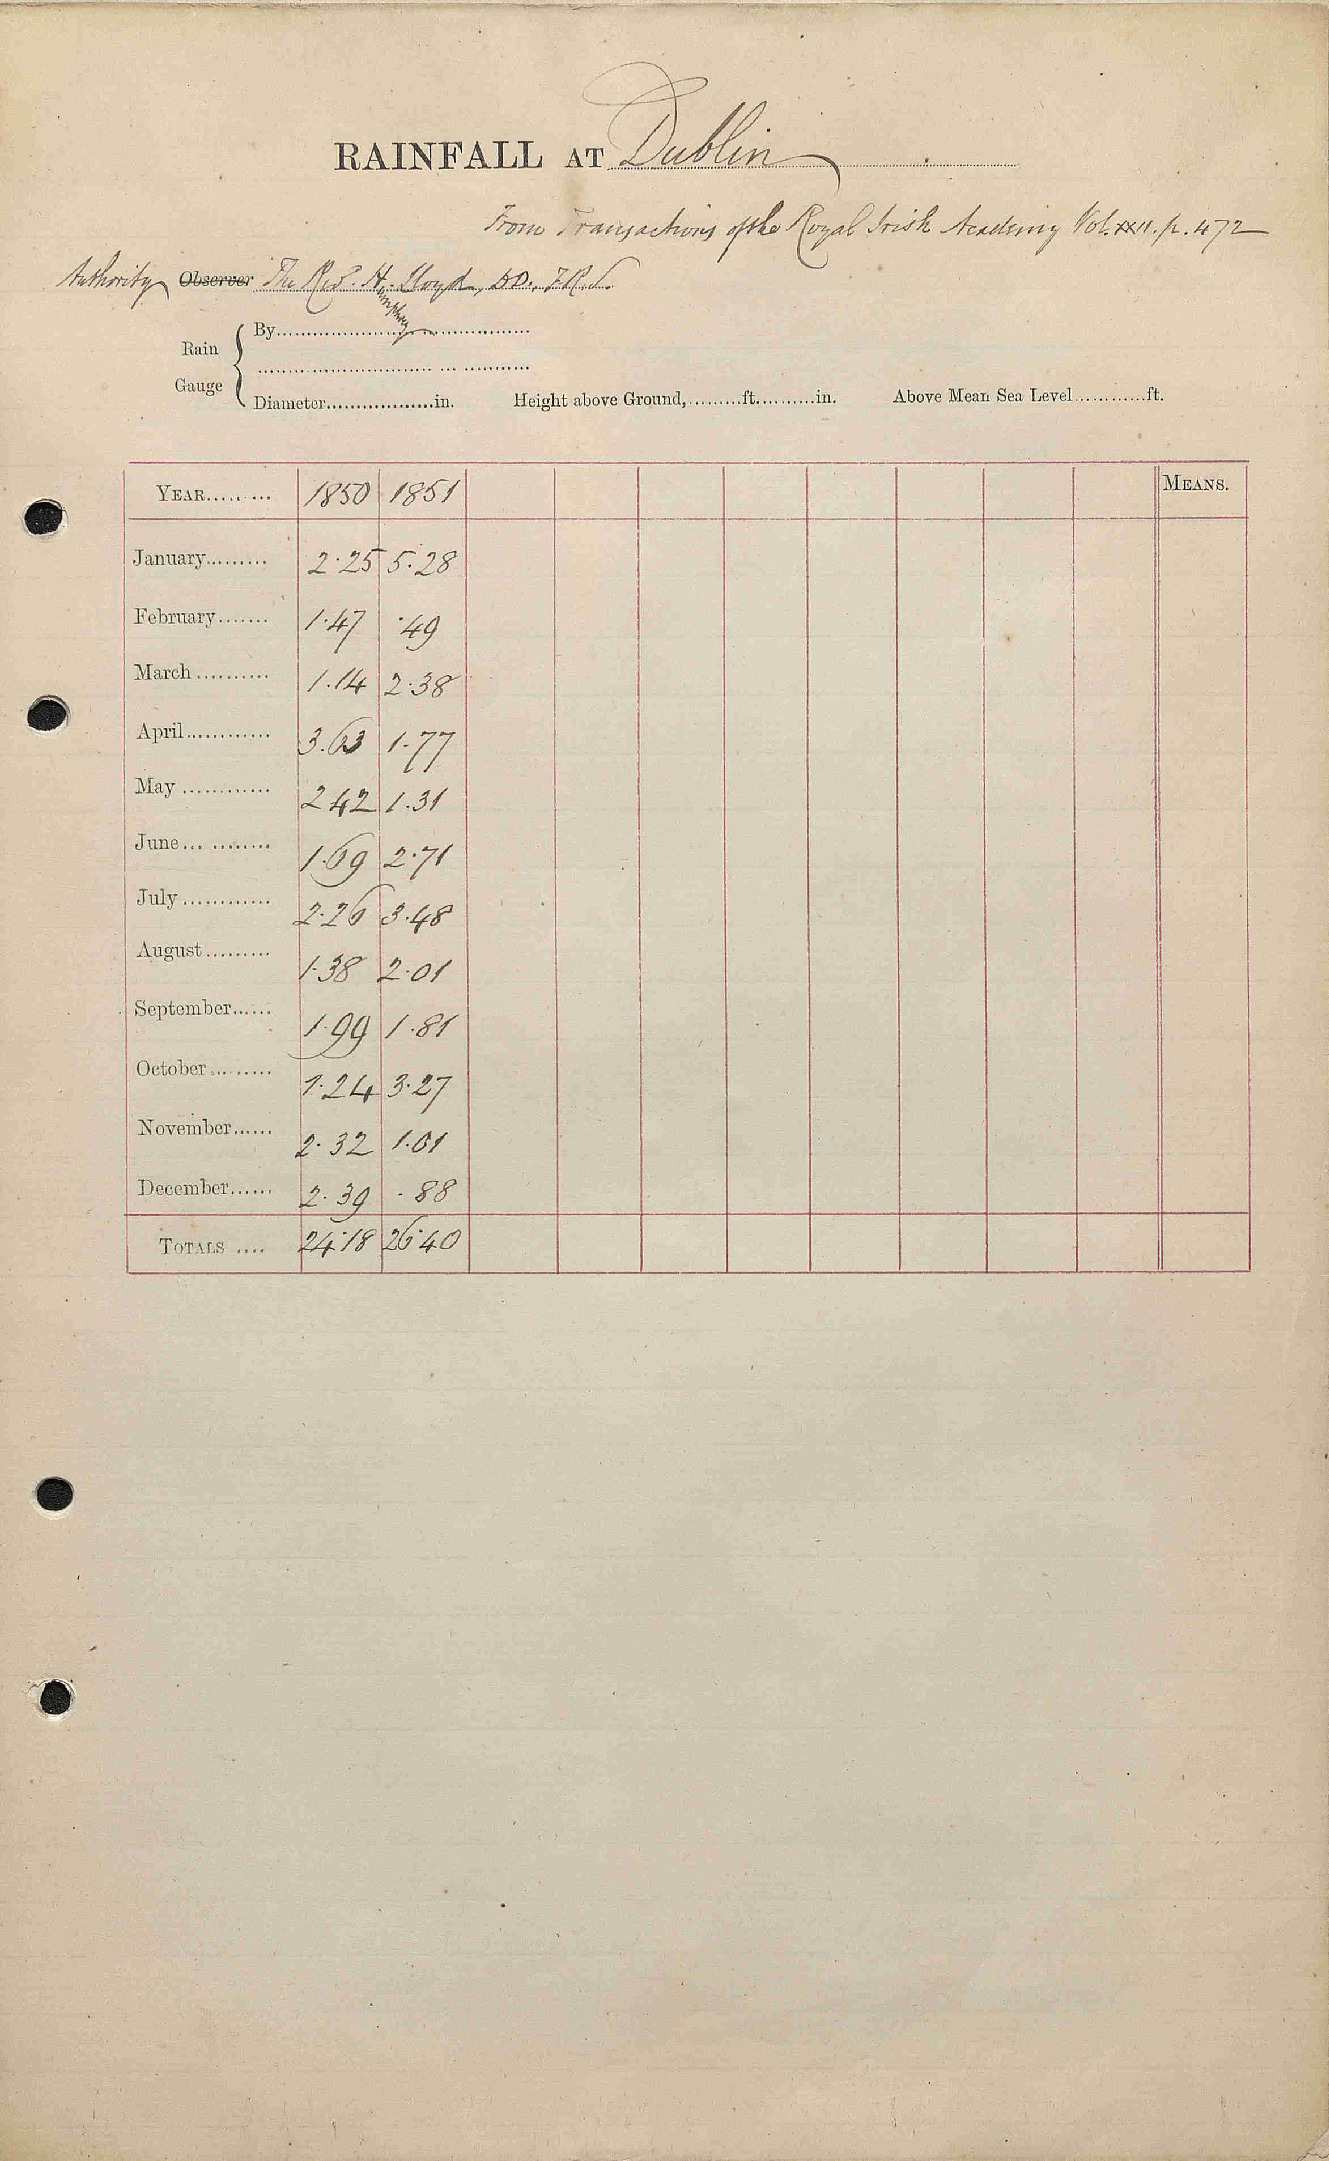 RAINFALL AT Dublin
From Transactions of the Royal Irish Academy Vol. XXII. p. 472
Authority Observer The Revd. H. Lloyd, DD., F.R.S.
Humphrey
Rain Gauge { By
Diameter in. Height above Ground, ft. in. Above Mean Sea Level ft.
YEAR 1850 1851 MEANS.
January 2.25 5.28
February 1.47 .49
March 1.14 2.38
April 3.63 1.77
May 2 42 1.31
June 1.69 2.71
July 2.26 3.48
August 1.38 2.01
September 1.99 1.81
October 1.24 3.27
November 2.32 1.01
December 2.39 .88
TOTALS 24.18 26.40